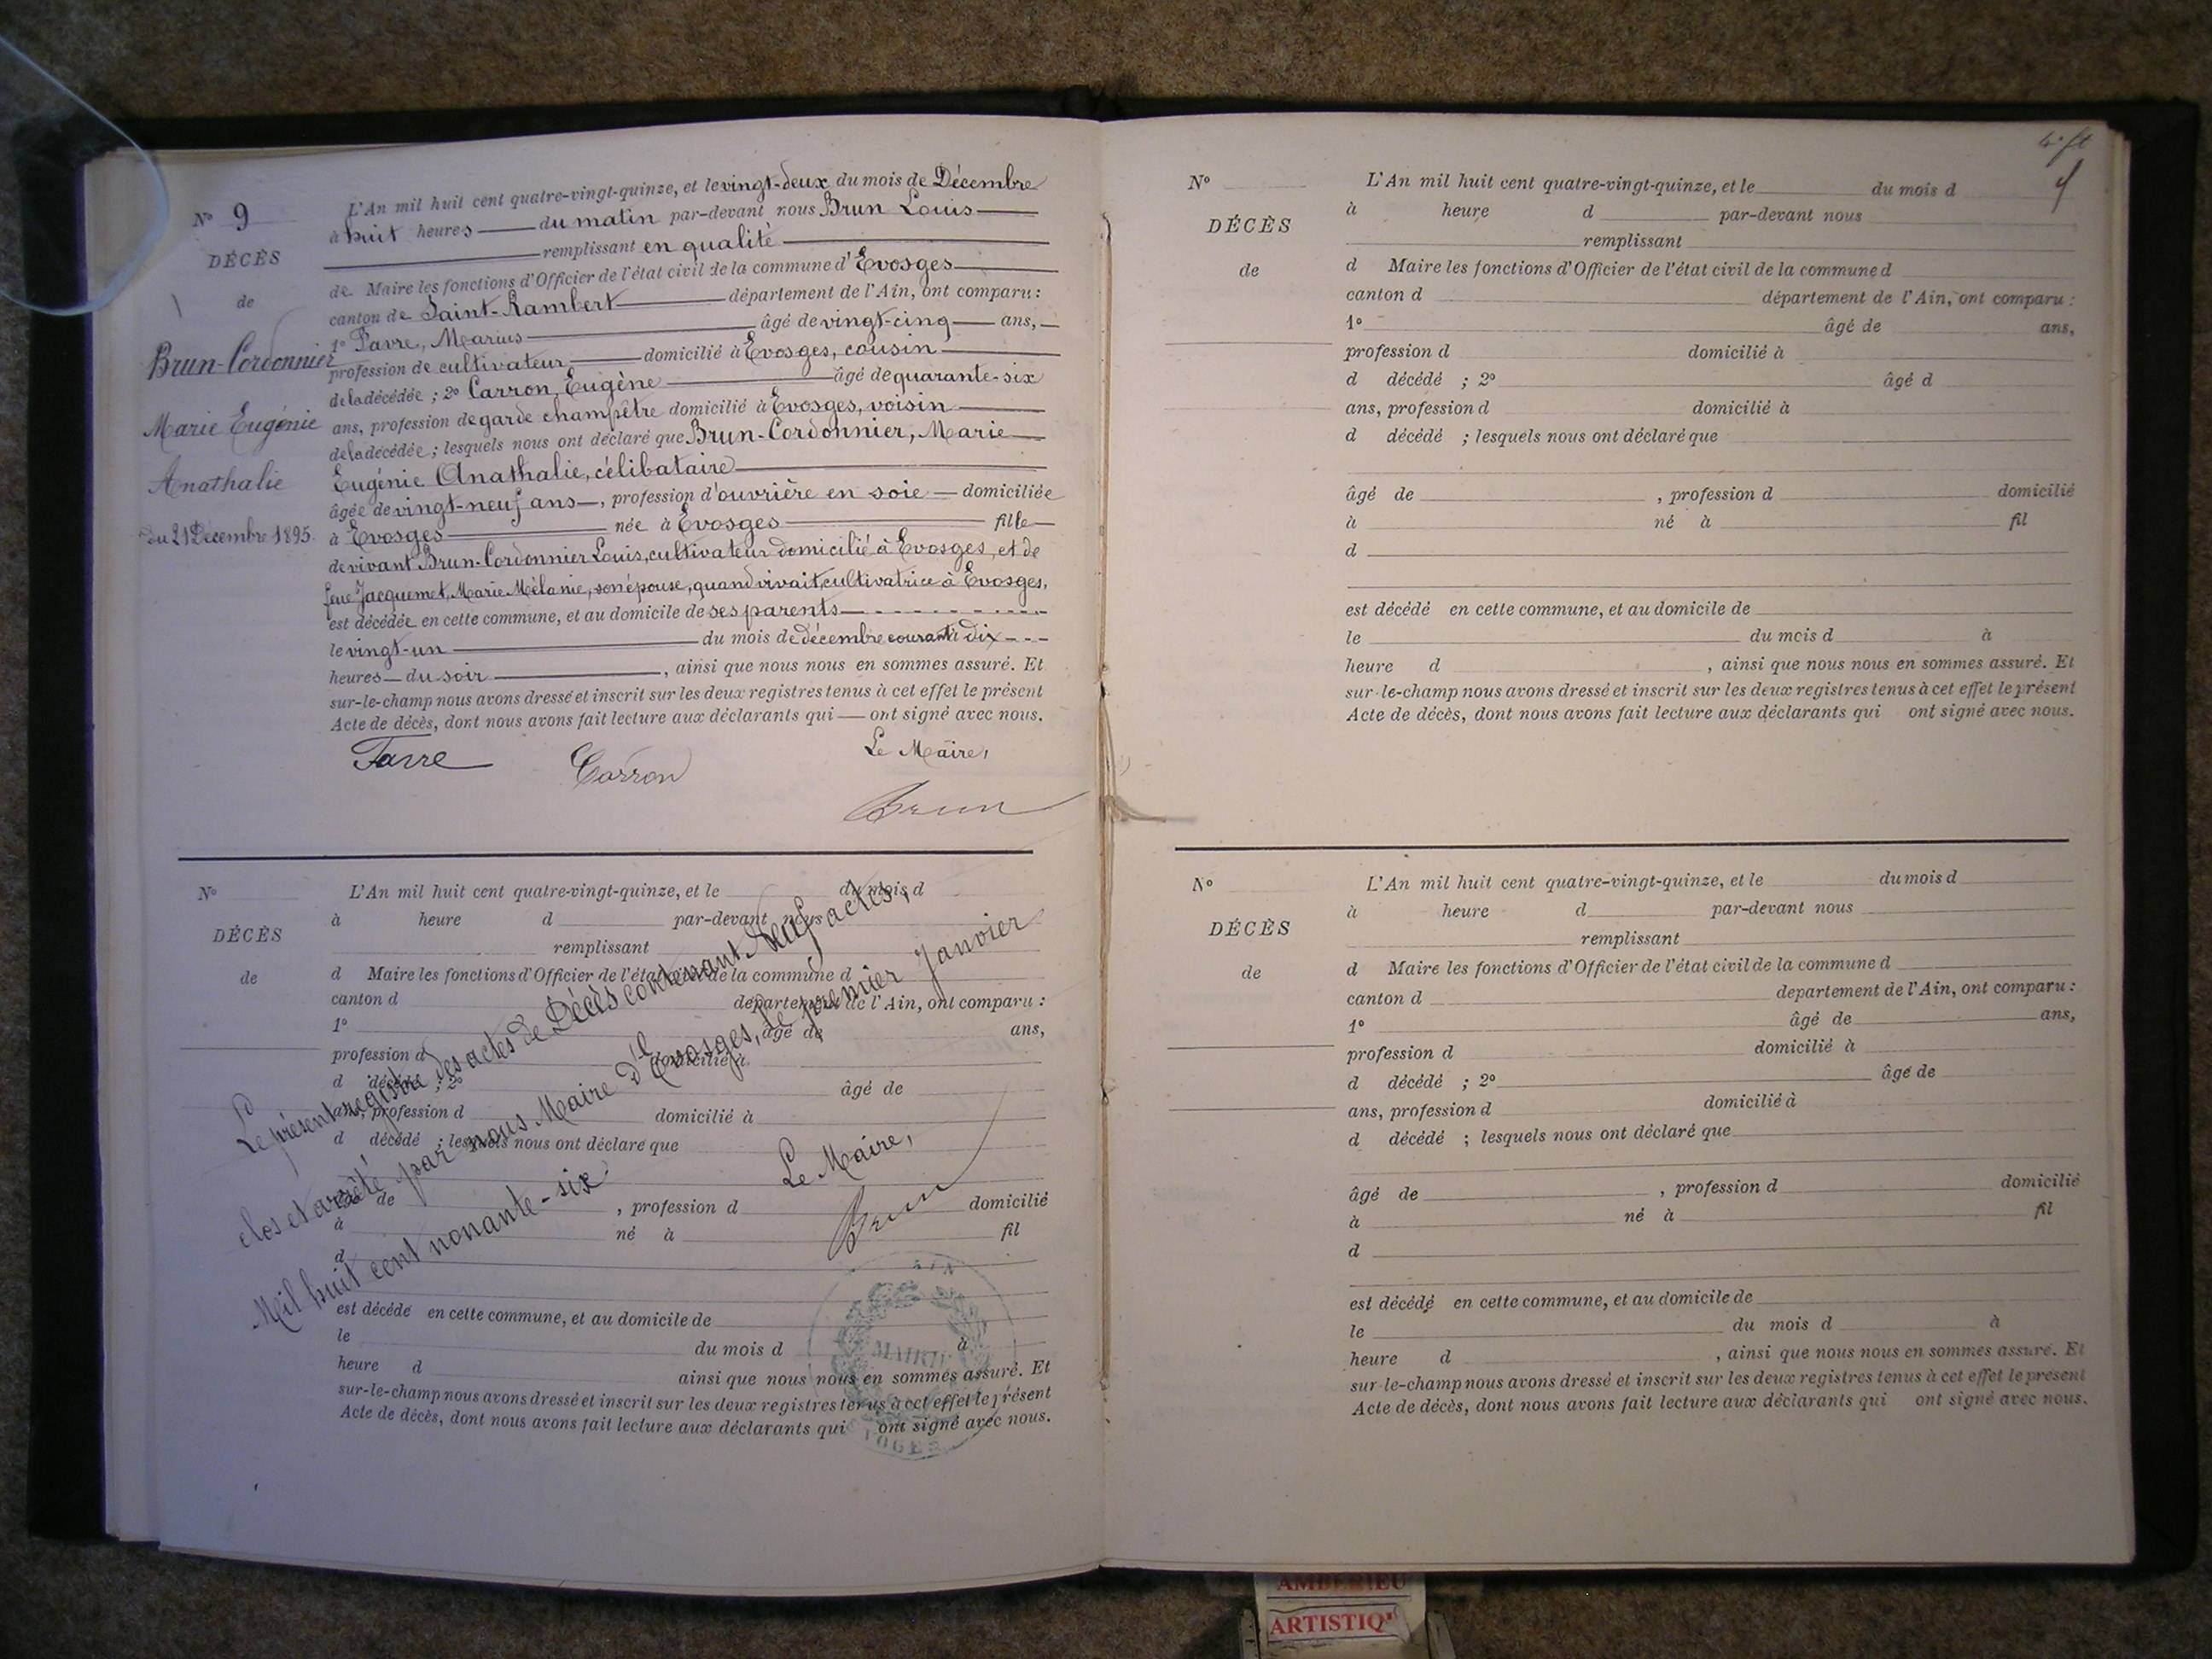 Nº 9
DÉCÈS
de
Brun-Cordonnier
Marie Eugénie
Anathalie
Du 21 Décembre 1895.
L'An mil huit cent quatre-vingt-quinze, et le vingt-deux du mois de Décembre
à huit heures du matin par-devant nous Brun Louis
remplissant en qualité
de Maire les fonctions d'Officier de l'état civil de la commune d'Evosges
canton de Saint-Rambert département de l'Ain, ont comparu :
1º Favre, Marius âgé de vingt-cinq ans,
profession de cultivateur domicilié à Evosges, cousin
de la décédée ; 2º Carron, Eugène âgé de quarante-six
ans, profession de garde champêtre domicilié à Evosges, voisin
de la décédée ; lesquels nous ont déclaré que Brun-Cordonnier, Marie
Eugénie Anathalie, célibataire
âgée de vingt-neuf ans, profession d'ouvrière en soie domiciliée
à Evosges née à Evosges fille
de vivant Brun-Cordonnier Louis, cultivateur domicilié à Evosges, et de
feue Jacquemet, Marie Mélanie, son épouse, quand vivait, cultivatrice à Evosges,
est décédée en cette commune, et au domicile de ses parents
le vingt-un du mois de décembre courant à dix
heures du soir, ainsi que nous nous en sommes assuré. Et
sur-le-champ nous avons dressé et inscrit sur les deux registres tenus à cet effet le présent
Acte de décès, dont nous avons fait lecture aux déclarants qui ont signé avec nous.
Favre Carron Le Maire,
Brun
Nº
DÉCÈS
de
L'An mil huit cent quatre-vingt-quinze, et le du mois d
à heure d par-devant nous
remplissant
d Maire les fonctions d'Officier de l'état civil de la commune d
canton d département de l'Ain, ont comparu :
1º âgé de ans,
profession d domicilié à
d décédé ; 2º âgé de
ans, profession d domicilié à
d décédé ; lesquels nous ont déclaré que
âgé de , profession d domicilié
à né à fil
d
est décédé en cette commune, et au domicile de
le du mois d à
heure d ainsi que nous nous en sommes assuré. Et
sur-le-champ nous avons dressé et inscrit sur les deux registres tenus à cet effet le présent
Acte de décès, dont nous avons fait lecture aux déclarants qui ont signé avec nous.
Le présent registre des actes de Décès contenant Neuf actes,
clos et arrêté par nous Maire d'Evosges, le premier Janvier
Mil huit cent nonante-six.
Le Maire,
Brun
AIN
MAIRIE
4
Nº
DÉCÈS
de
L'An mil huit cent quatre-vingt-quinze, et le du mois d
à heure d par-devant nous
remplissant
d Maire les fonctions d'Officier de l'état civil de la commune d
canton d département de l'Ain, ont comparu :
1º âgé de ans,
profession d domicilié à
d décédé ; 2º âgé d
ans, profession d domicilié à
d décédé ; lesquels nous ont déclaré que
âgé de , profession d domicilié
à né à fil
d
est décédé en cette commune, et au domicile de
le du mois d à
heure d , ainsi que nous nous en sommes assuré. Et
sur-le-champ nous avons dressé et inscrit sur les deux registres tenus à cet effet le présent
Acte de décès, dont nous avons fait lecture aux déclarants qui ont signé avec nous.
Nº
DÉCÈS
de
L'An mil huit cent quatre-vingt-quinze, et le du mois d
à heure d par-devant nous
remplissant
d Maire les fonctions d'Officier de l'état civil de la commune d
canton d département de l'Ain, ont comparu :
1º âgé de ans,
profession d domicilié à
d décédé ; 2º âgé de
ans, profession d domicilié à
d décédé ; lesquels nous ont déclaré que
âgé de , profession d domicilié
à né à fil
d
est décédé en cette commune, et au domicile de
le du mois d à
heure d , ainsi que nous nous en sommes assuré. Et
sur-le-champ nous avons dressé et inscrit sur les deux registres tenus à cet effet le présent
Acte de décès, dont nous avons fait lecture aux déclarants qui ont signé avec nous.
AMBERIEU
ARTISTIQ